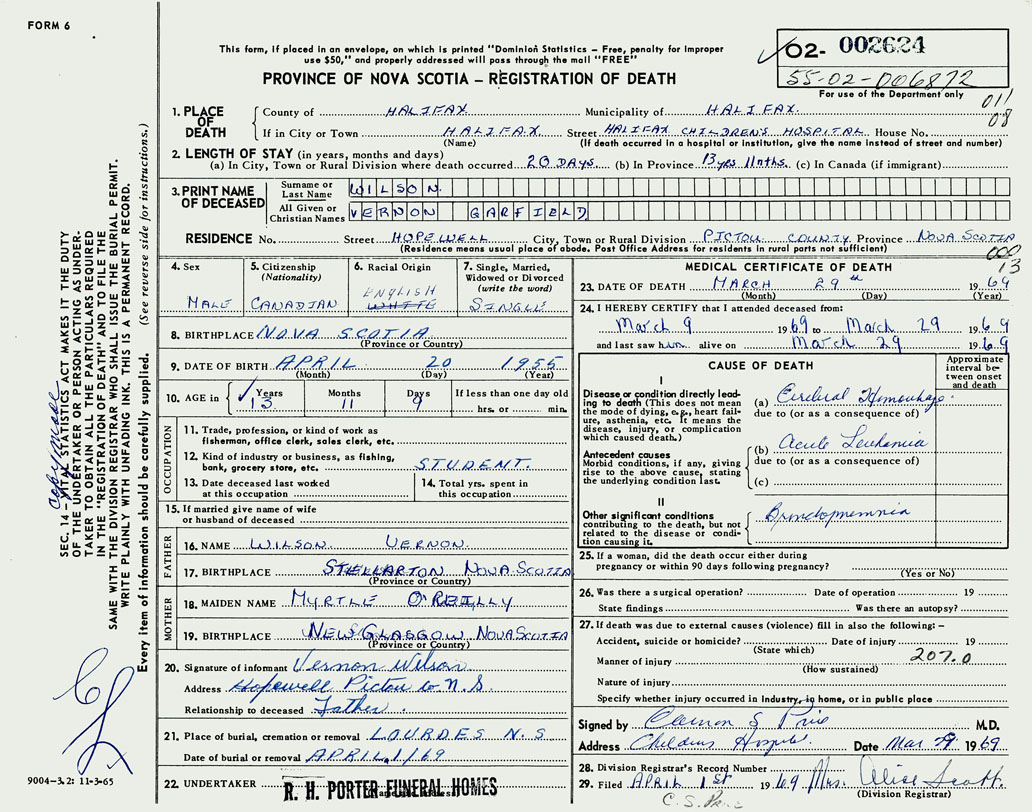 FORM 6
This form, if placed in an envelope, on which is printed "Dominion Statistics – Free, penalty for improper
use $50," and properly addressed will pass through the mail "FREE"
PROVINCE OF NOVA SCOTIA – REGISTRATION OF DEATH
02- 002624
55-02-006872
For use of the Department only
011
08
1. PLACE OF DEATH
County of HALIFAX Municipality of HALIFAX
If in City or Town HALIFAX Street HALIFAX CHILDREN'S HOSPITAL House No.
(Name) (If death occurred in a hospital or institution, give the name instead of street and number)
2. LENGTH OF STAY (in years, months and days)
(a) In City, Town or Rural Division where death occurred 20 DAYS (b) In Province 13 yrs 11 mths. (c) In Canada (if immigrant)
3. PRINT NAME OF DECEASED
Surname or Last Name WILSON
All Given or Christian Names VERNON GARFIELD
RESIDENCE No. Street HOPEWELL City, Town or Rural Division PICTOU COUNTY Province NOVA SCOTIA
(Residence means usual place of abode. Post Office Address for residents in rural parts not sufficient)
000
13
4. Sex
MALE
5. Citizenship (Nationality)
CANADIAN
6. Racial Origin
ENGLISH
WHITE
7. Single, Married, Widowed or Divorced (write the word)
SINGLE
8. BIRTHPLACE NOVA SCOTIA
(Province or Country)
9. DATE OF BIRTH APRIL 20 1955
(Month) (Day) (Year)
10. AGE in Years Months Days If less than one day old
13 11 9 hrs. or min.
OCCUPATION
11. Trade, profession, or kind of work as
fisherman, office clerk, sales clerk, etc.
12. Kind of industry or business, as fishing,
bank, grocery store, etc. STUDENT.
13. Date deceased last worked
at this occupation
14. Total yrs. spent in
this occupation
15. If married give name of wife
or husband of deceased
FATHER
16. NAME WILSON VERNON
17. BIRTHPLACE STELLARTON NOVA SCOTIA
(Province or Country)
MOTHER
18. MAIDEN NAME MYRTLE O'REILLY
19. BIRTHPLACE NEW GLASGOW NOVA SCOTIA
(Province or Country)
20. Signature of informant Vernon Wilson
Address Hopewell Pictou Co N.S.
Relationship to deceased Father.
21. Place of burial, cremation or removal LOURDES N.S
Date of burial or removal APRIL 1/69
22. UNDERTAKER R. H. PORTER FUNERAL HOMES
MEDICAL CERTIFICATE OF DEATH
23. DATE OF DEATH MARCH 29th 1969
(Month) (Day) (Year)
24. I HEREBY CERTIFY that I attended deceased from:
March 9 1969 to March 29 1969
and last saw him alive on March 29 1969
CAUSE OF DEATH
Approximate interval between onset and death
I
Disease or condition directly leading to death (This does not mean the mode of dying, e.g., heart failure, asthenia, etc. It means the disease, injury, or complication which caused death.)
(a) Cerebral Hemorrhage
due to (or as a consequence of)
Antecedent causes
Morbid conditions, if any, giving rise to the above cause, stating the underlying condition last.
(b) Acute Leukemia
due to (or as a consequence of)
(c)
II
Other significant conditions contributing to the death, but not related to the disease or condition causing it.
Bronchopneumonia
25. If a woman, did the death occur either during
pregnancy or within 90 days following pregnancy?
(Yes or No)
26. Was there a surgical operation? Date of operation 19
State findings Was there an autopsy?
27. If death was due to external causes (violence) fill in also the following: –
Accident, suicide or homicide? Date of injury 19
(State which)
207.0
Manner of injury
(How sustained)
Nature of injury
Specify whether injury occurred in industry, in home, or in public place
Signed by M.D.
Address Childrens Hospital Date Mar 29 1969
28. Division Registrar's Record Number
29. Filed APRIL 1st 1969 Mrs. Alice Scott.
(Division Registrar)
SEC. 14 – VITAL STATISTICS ACT MAKES IT THE DUTY
OF THE UNDERTAKER OR PERSON ACTING AS UNDER-
TAKER TO OBTAIN ALL THE PARTICULARS REQUIRED
IN THE "REGISTRATION OF DEATH" AND TO FILE THE
SAME WITH THE DIVISION REGISTRAR WHO SHALL ISSUE THE BURIAL PERMIT.
WRITE PLAINLY WITH UNFADING INK. THIS IS A PERMANENT RECORD.
Every item of information should be carefully supplied. (See reverse side for instructions.)
9004-3.2: 11-3-65